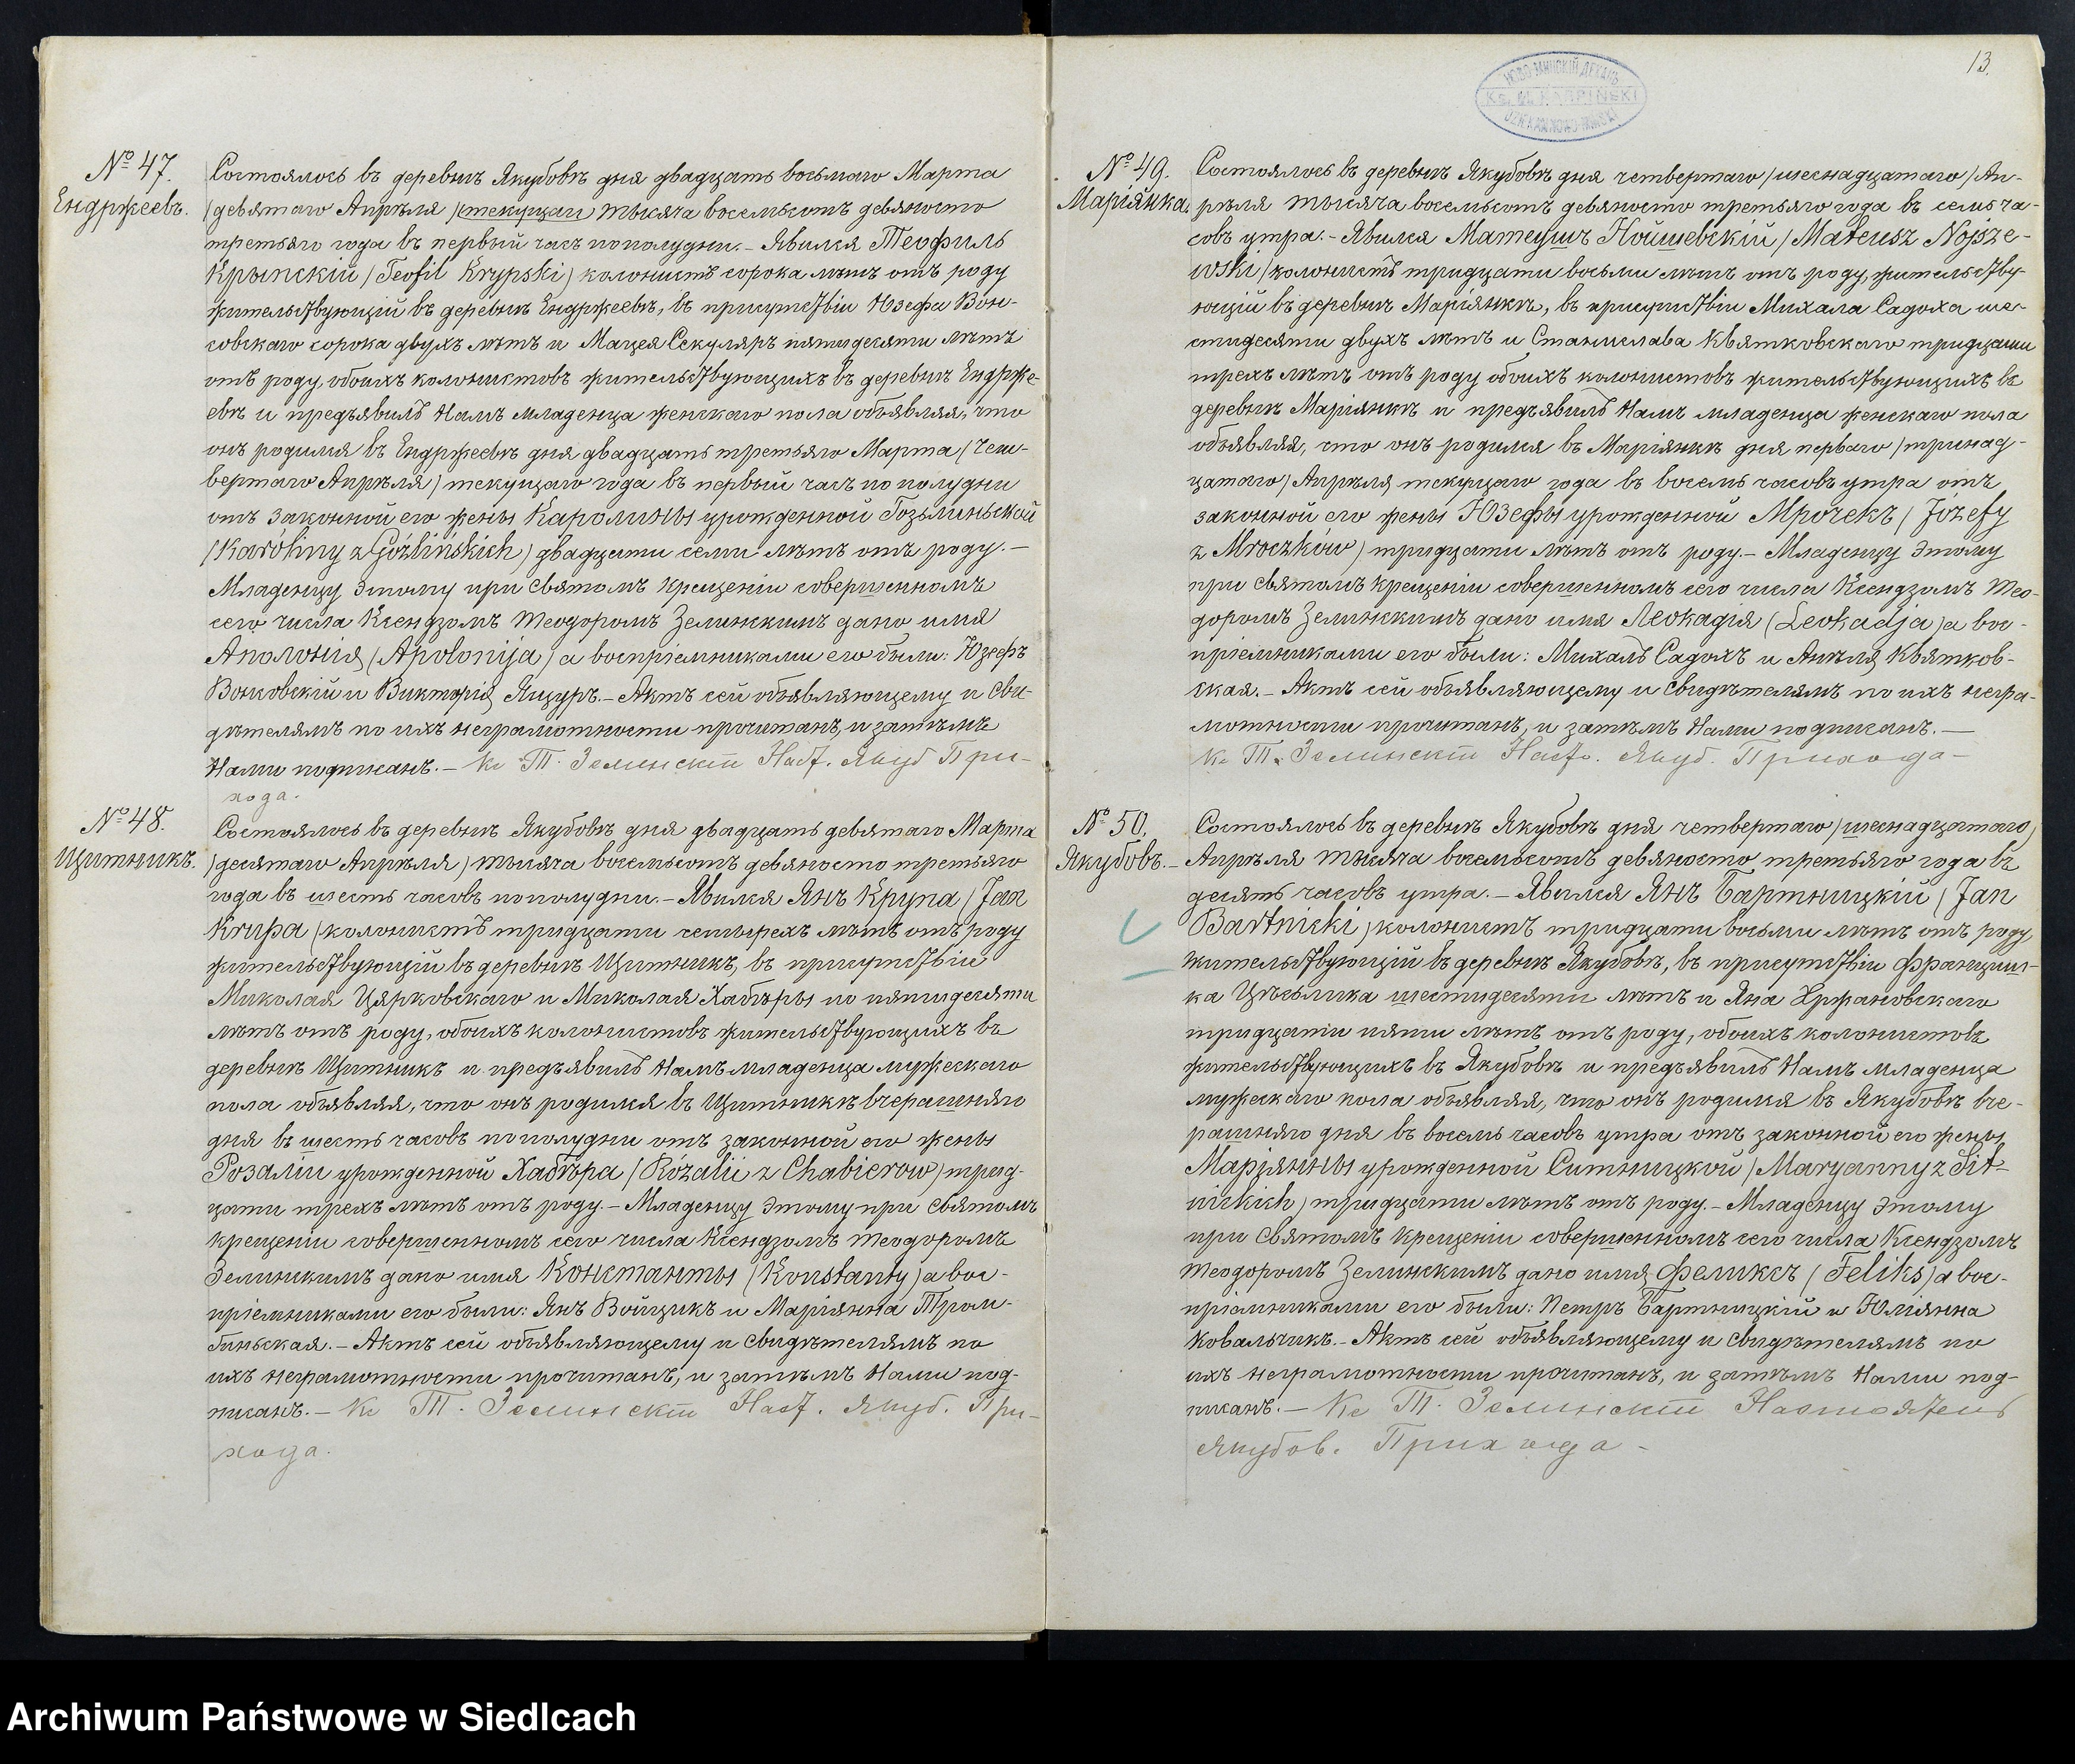 № 47.
Ендржеевъ.
Состоялось въ деревнѣ Якубовѣ дня двадцать восьмаго Марта
/девятаго Апрѣля/ текущаго тысяча восемьсотъ девяносто
третьяго года въ первый часъ пополудни.– Явился Теофиль
Крыпскій /Teofil Krypski/ колонистъ сорока лѣтъ отъ роду
жительствующій въ деревнѣ Ендржеевѣ, въ присутствіи Юзефа Вон-
совскаго сорока двухъ лѣтъ и Мацея Секуляръ пятидесяти лѣтъ
отъ роду, обоихъ колонистовъ жительствующихъ въ деревнѣ Ендрже-
евѣ и предъявилъ Намъ младенца женскаго пола объявляя, что
онъ родился въ Ендржеевѣ дня двадцать третьяго Марта /чет-
вертаго Апрѣля/ текущаго года въ первый часъ по полудни
отъ законной его жены Каролины урожденной Гозьлиньской
/Karóliny z Góźlińskich/ двадцати семи лѣтъ отъ роду.–
Младенцу этому при святомъ крещеніи совершенномъ
сего числа Ксендзомъ Теодоромъ Зелинскимъ дано имя
Аполонія /Apolonija/ а воспріемниками его были: Юзефъ
Вонсовскій и Викторія Яцуръ.– Актъ сей объявляющему и сви-
дѣтелямъ по ихъ неграмотности прочитанъ, и затѣмъ
Нами подписанъ.– Кс Т. Зелинскій Наст. Якуб При-
хода.
№ 48.
Щитникъ.
Состоялось въ деревнѣ Якубовѣ дня двадцать девятаго Марта
/десятаго Апрѣля/ тысяча восемьсотъ девяносто третьяго
года въ шесть часовъ пополудни.– Явился Янъ Крупа /Jan
Krupa/ колонистъ тридцати четырехъ лѣтъ отъ роду
жительствующій въ деревнѣ Щитникѣ, въ присутствіи
Миколая Цярковскаго и Миколая Хабѣры по пятидесяти
лѣтъ отъ роду, обоихъ колонистовъ жительствующихъ въ
деревнѣ Щитникѣ и предъявилъ Намъ младенца мужескаго
пола объявляя, что онъ родился въ Щитникѣ вчерашняго
дня въ шесть часовъ пополудни отъ законной его жены
Розаліи урожденной Хабѣра /Rózalii z Chabierow/ трид-
цати трехъ лѣтъ отъ роду.– Младенцу этому при святомъ
крещеніи совершенномъ сего числа Ксендзомъ Теодоромъ
Зелинскимъ дано имя Константы /Konstanty/ а вос-
пріемниками его были: Янъ Войцикъ и Маріянна Тром-
биньская.– Актъ сей объявляющему и свидѣтелямъ по
ихъ неграмотности прочитанъ, и затѣмъ Нами под-
писанъ.– Кс Т. Зелинскій Наст. Якуб. При-
хода.
13.
НОВО-МИНСКІЙ ДЕКАНЪ
Ks. M. KARPIŃSKI
№ 49.
Маріянка.
Состоялось въ деревнѣ Якубовѣ дня четвертаго /шеснадцатаго/ Ап-
рѣля тысяча восемьсотъ девяносто третьяго года въ семь ча-
совъ утра.– Явился Матеушъ Нойшевскій /Mateusz Nojsze-
wski/ колонистъ тридцати восьми лѣтъ отъ роду, жительству-
ющій въ деревнѣ Маріянкѣ, въ присутствіи Михала Садоха ше-
стидесяти двухъ лѣтъ и Станислава Квятковскаго тридцати
трехъ лѣтъ отъ роду обоихъ колонистовъ жительствующихъ въ
деревнѣ Маріянкѣ и предъявилъ Намъ младенца женскаго пола
объявляя, что онъ родился въ Маріянкѣ дня перваго /тринад-
цатаго/ Апрѣля текущаго года въ восемь часовъ утра отъ
законной его жены Юзефы урожденной Мрочекъ /Józefy
z Mroczków/ тридцати лѣтъ отъ роду.– Младенцу этому
при святомъ крещеніи совершенномъ сего числа Ксендзомъ Тео-
доромъ Зелинскимъ дано имя Леокадія (Leokadja) а вос-
пріемниками его были: Михалъ Садохъ и Анѣля Квятков-
ская.– Актъ сей объявляющему и свидѣтелямъ по ихъ негра-
мотности прочитанъ, и затѣмъ Нами подписанъ.–
Кс Т. Зелинскій Наст. Якуб. Прихода–
№ 50.
Якубовъ.–
Состоялось въ деревнѣ Якубовѣ дня четвертаго /шеснадцатаго/
Апрѣля тысяча восемьсотъ девяносто третьяго года въ
десять часовъ утра.– Явился Янъ Бартницкій /Jan
Bartnicki/ колонистъ тридцати восьми лѣтъ отъ роду
жительствующій въ деревнѣ Якубовѣ, въ присутствіи Францишка
ка Цѣсьлика шестидесяти лѣтъ и Яна Хржановскаго
тридцати пяти лѣтъ отъ роду, обоихъ колонистовъ
жительствующихъ въ Якубовѣ и предъявилъ Намъ младенца
мужескаго пола объявляя, что онъ родился въ Якубовѣ вче-
рашняго дня въ восемь часовъ утра отъ законной его жены
Маріянны урожденной Ситницкой /Maryanny z Sit-
nickich/ тридцати лѣтъ отъ роду.– Младенцу этому
при святомъ крещеніи совершенномъ сего числа Ксендзомъ
Теодоромъ Зелинскимъ дано имя Феликсъ /Feliks/ а вос-
пріемниками его были: Петръ Бартницкій и Юліянна
Ковальчикъ.– Актъ сей объявляющему и свидѣтелямъ по
ихъ неграмотности прочитанъ, и затѣмъ Нами под-
писанъ.– Кс Т. Зелинскій Настоятель
Якубов. Прихода–
Archiwum Państwowe w Siedlcach